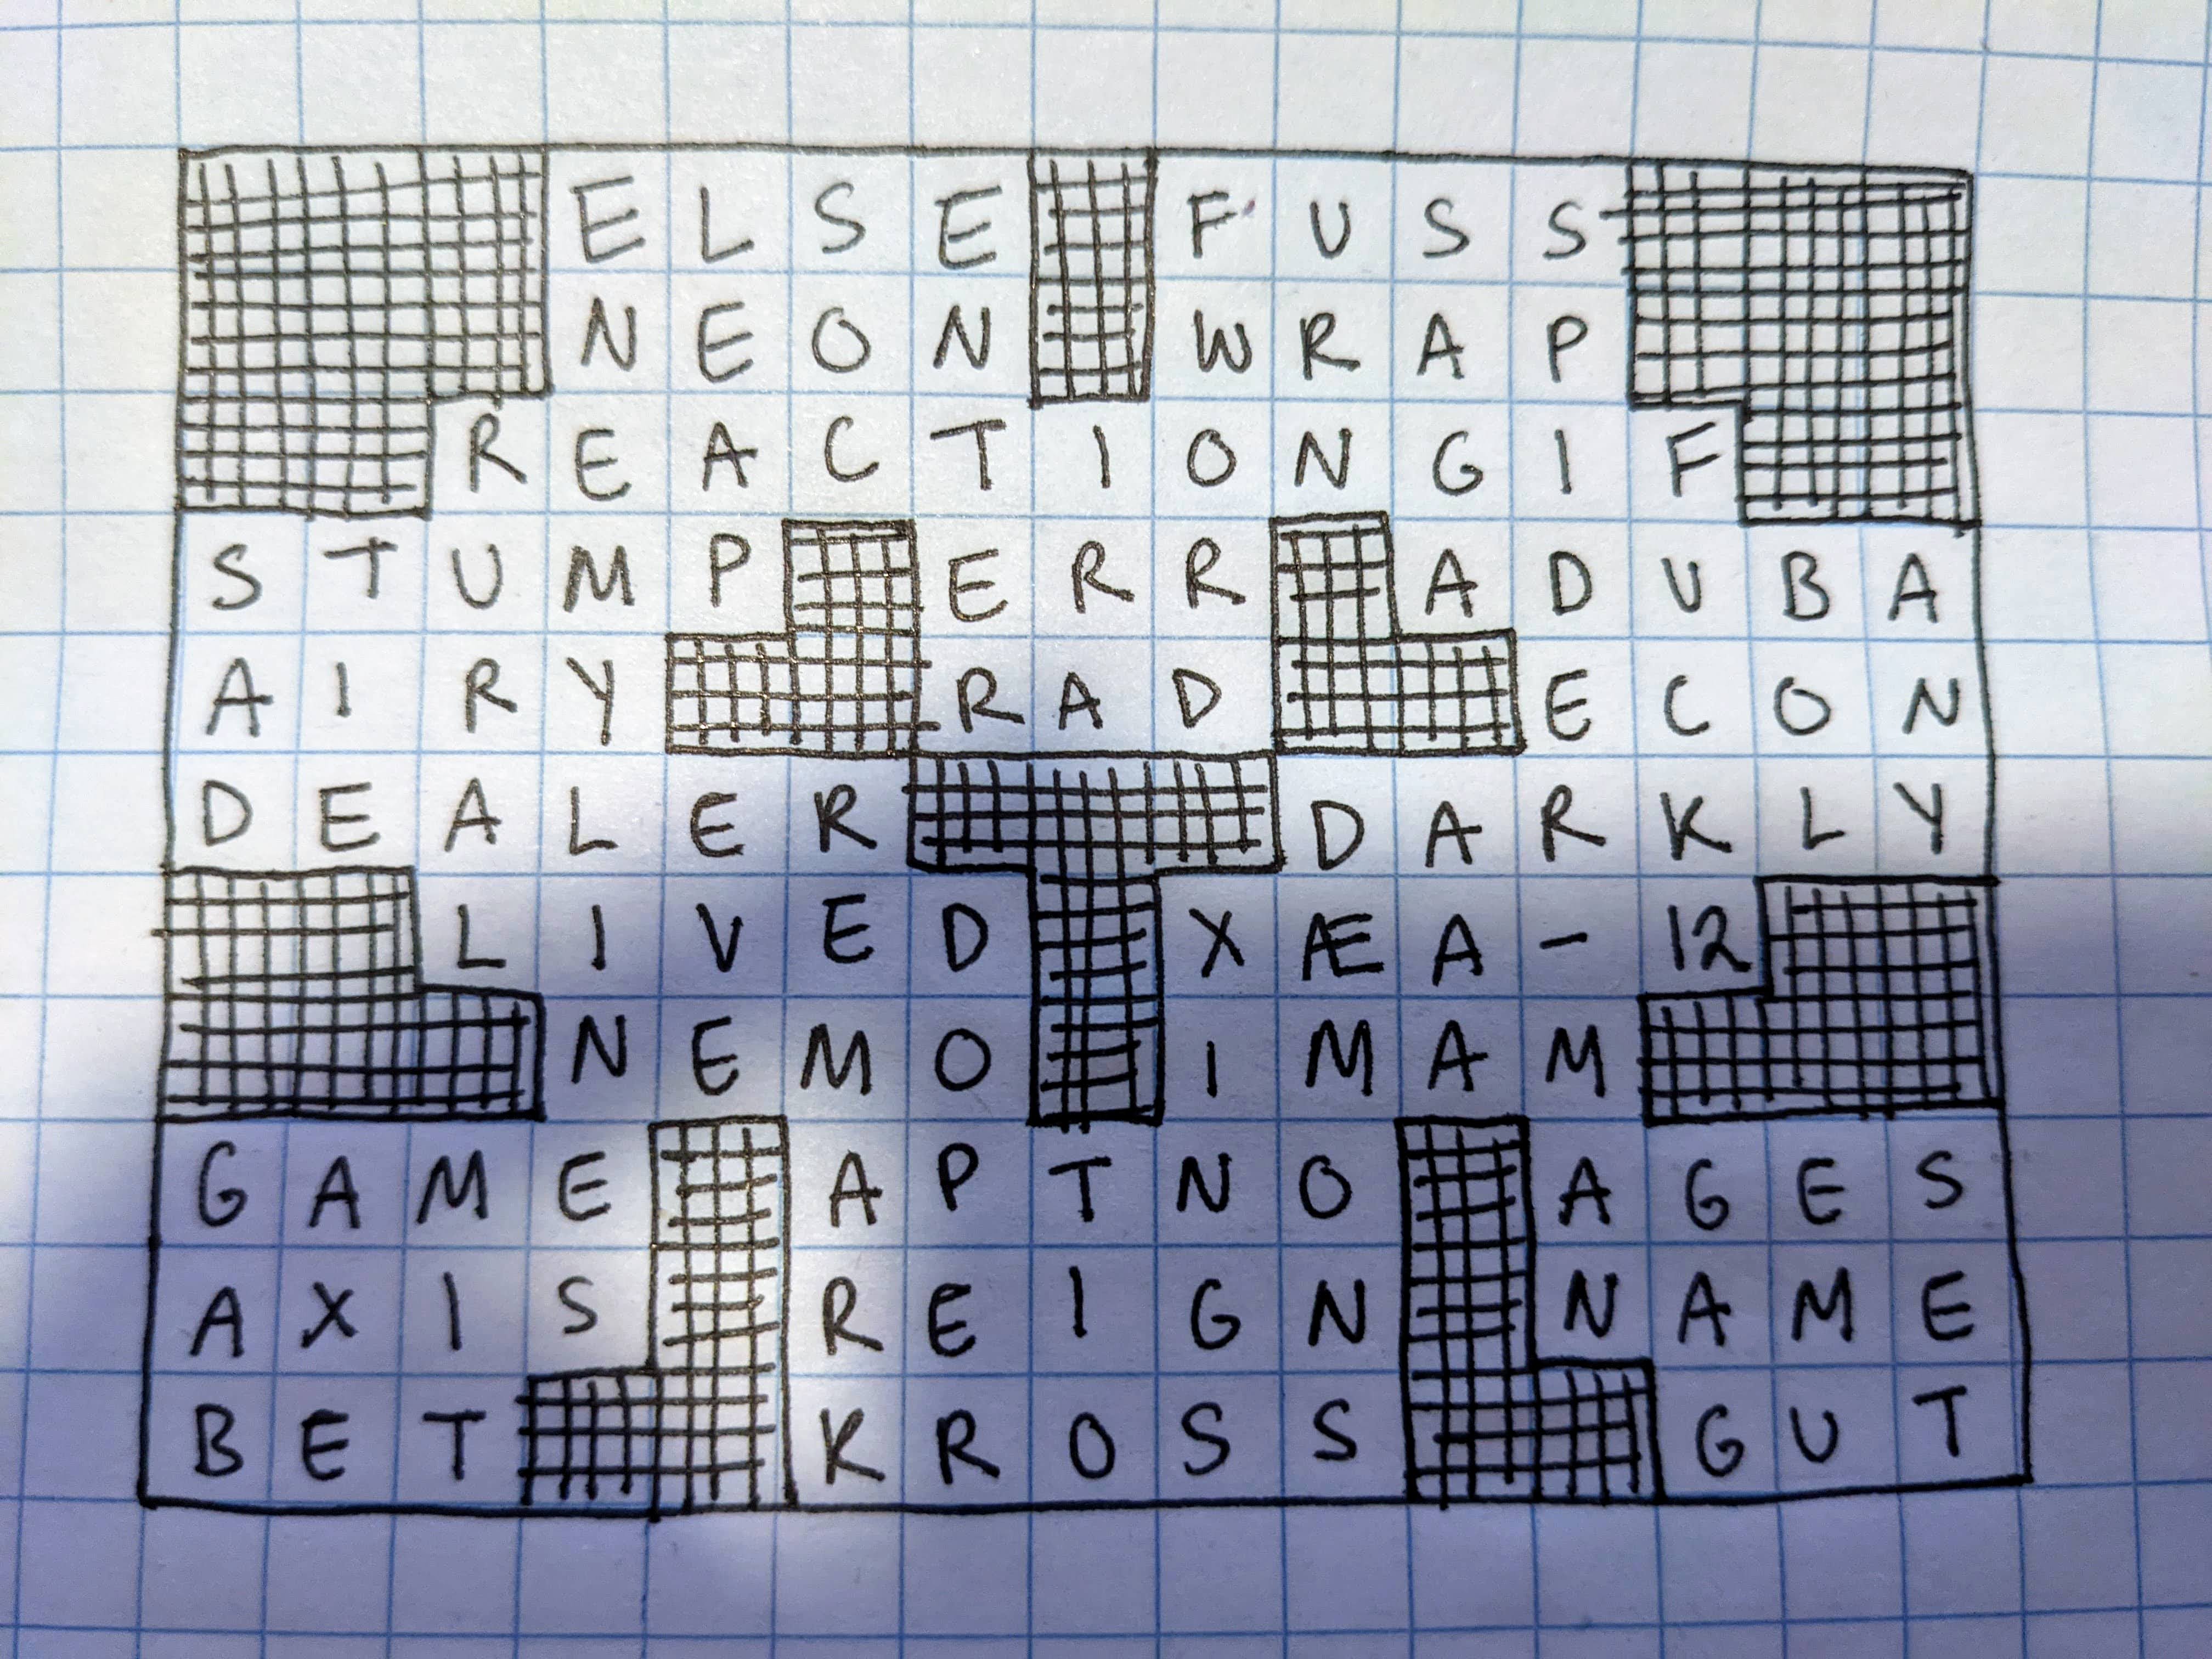 ELSE FUSS
NEON WRAP
REACTIONGIF
STUMP ERR ADUBA
AIRY RAD ECON
DEALER DARKLY
LIVED XÆA-12
NEMO IMAM
GAME APTNO AGES
AXIS REIGN NAME
BET KROSS GUT